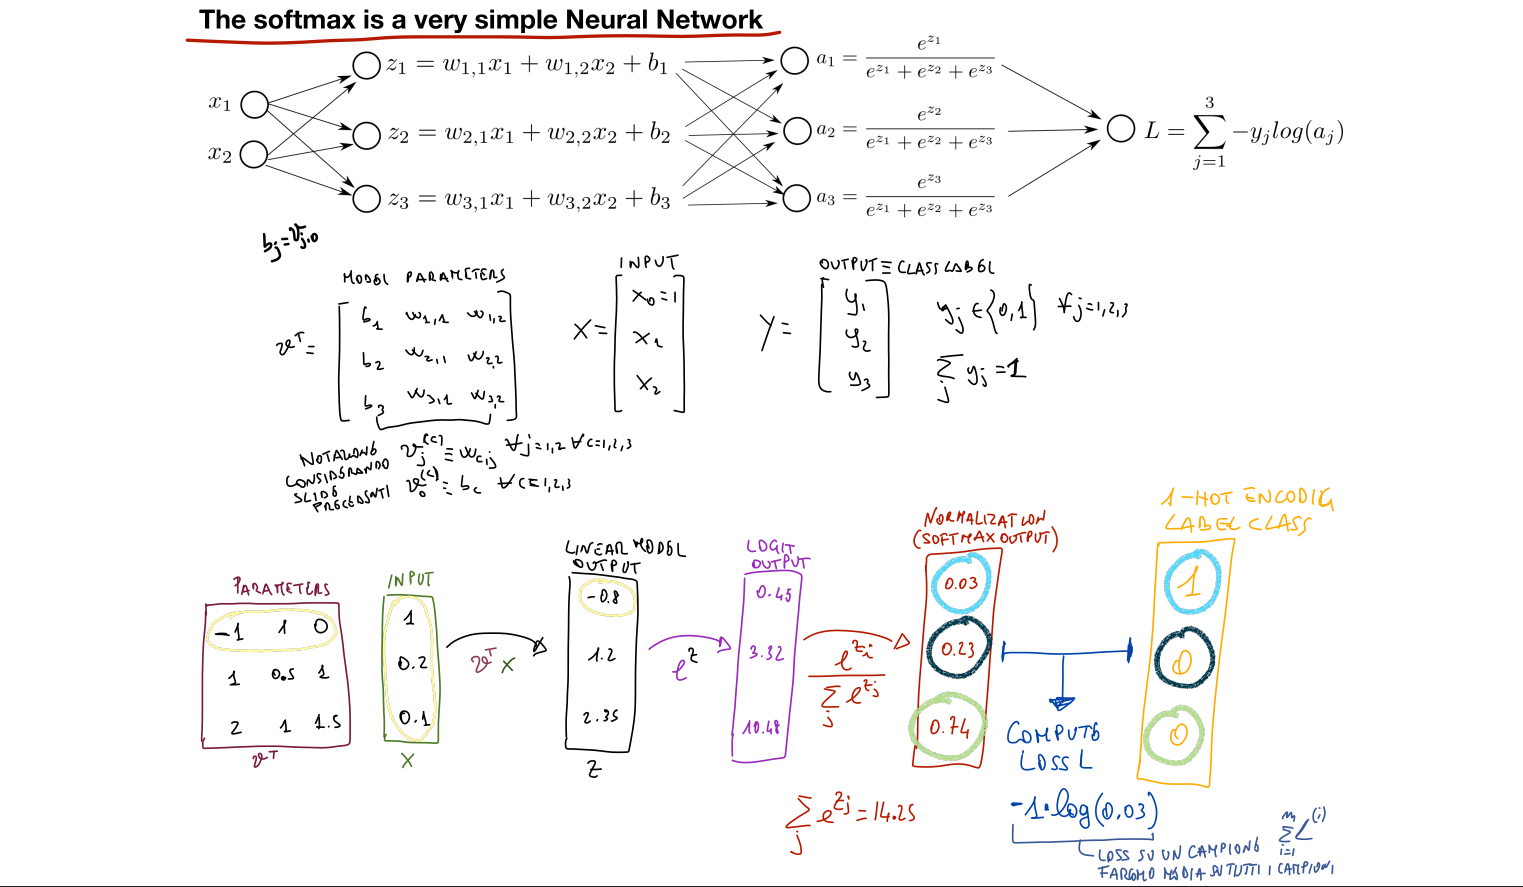 The softmax is a very simple Neural Network
x₁
x₂
z₁ = w₁,₁x₁ + w₁,₂x₂ + b₁
z₂ = w₂,₁x₁ + w₂,₂x₂ + b₂
z₃ = w₃,₁x₁ + w₃,₂x₂ + b₃
a₁ = e^{z₁} / (e^{z₁} + e^{z₂} + e^{z₃})
a₂ = e^{z₂} / (e^{z₁} + e^{z₂} + e^{z₃})
a₃ = e^{z₃} / (e^{z₁} + e^{z₂} + e^{z₃})
L = ∑_{j=1}^{3} −y_j log(a_j)
b_j = ϑ_{j,0}
MODEL PARAMETERS
ϑᵀ =
b₁ w₁,₁ w₁,₂
b₂ w₂,₁ w₂,₂
b₃ w₃,₁ w₃,₂
INPUT
X =
x₀=1
x₁
x₂
OUTPUT ≡ CLASS LABEL
Y =
y₁
y₂
y₃
y_j ∈ {0,1} ∀j=1,2,3
∑_j y_j = 1
NOTAZIONE
CONSIDERANDO
SLIDE
PRECEDENTI
ϑ_j^{(c)} ≡ w_{c,j} ∀j=1,2 ∀c=1,2,3
ϑ_0^{(c)} ≡ b_c ∀c=1,2,3
PARAMETERS
-1 1 0
1 0.5 1
2 1 1.5
ϑᵀ
INPUT
1
0.2
0.1
X
ϑᵀ X
LINEAR MODEL
OUTPUT
-0.8
1.2
2.35
Z
e^z
LOGIT
OUTPUT
0.45
3.32
10.48
e^{z_i} / ∑_j e^{z_j}
NORMALIZATION
(SOFTMAX OUTPUT)
0.03
0.23
0.74
∑_j e^{z_j} = 14.25
COMPUTE
LOSS L
-1·log(0.03)
1-HOT ENCODING
LABEL CLASS
1
0
0
LOSS SU UN CAMPIONE
FAREMO MEDIA SU TUTTI I CAMPIONI
∑_{i=1}^{m} L^{(i)}